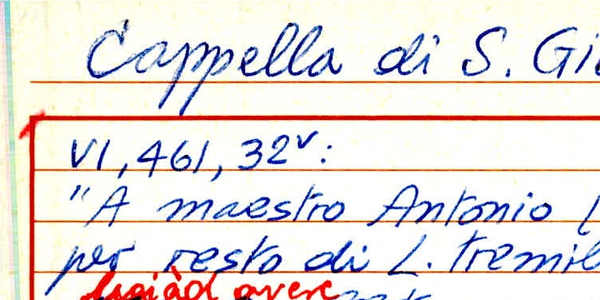 Cappella di S. Gi
VI, 461, 32v:
"A maestro Antonio
per resto di L. tremil
avere